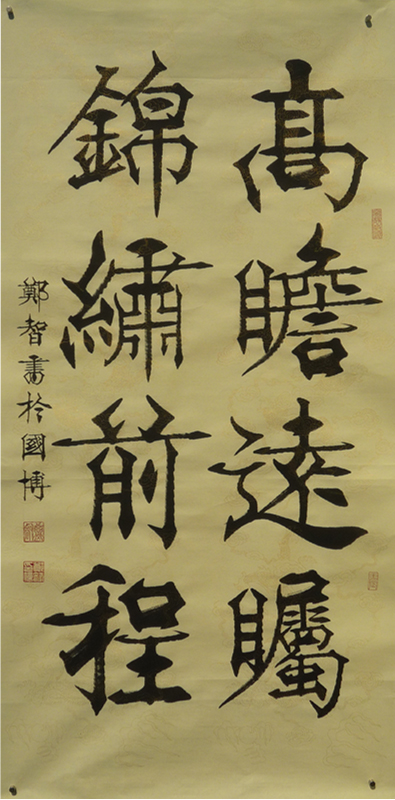 高瞻遠矚
錦繡前程
鄭智書於國博